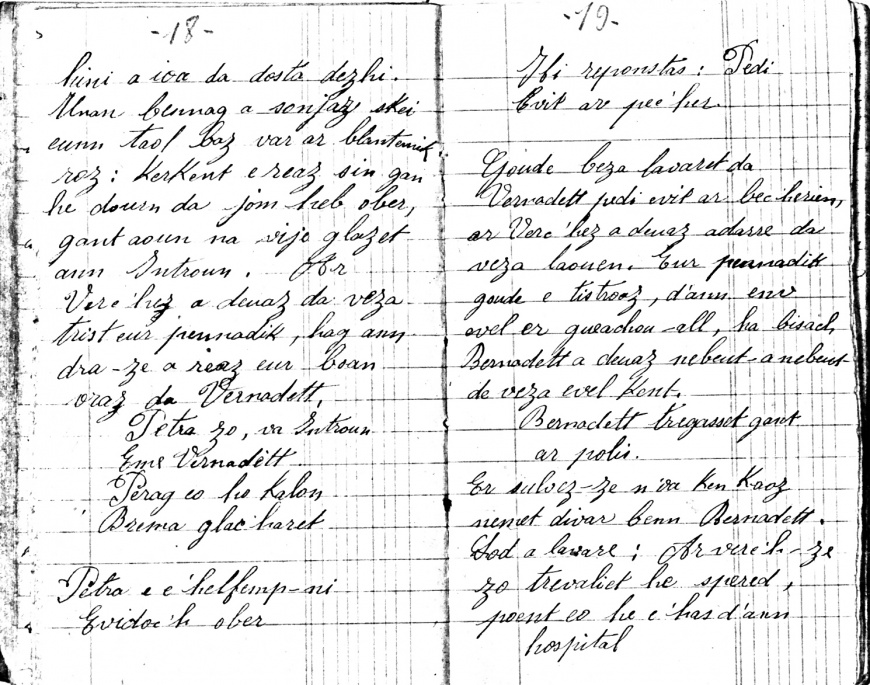 -18-
hini a ioa da dosta dezhi.
Unan bennag a sonjaz skei
eunn taol baz var ar blantennik
roz : Kerkent e reaz sin gan
he dourn da jom heb ober,
gant aoun na vije glazet
ann Introun. Ar
Verc'hez a deuaz da veza
trist eur pennadik, hag ann
dra-ze a reaz eur boan
vraz da Vernadett.
Petra zo, va Introun
Eme Vernadett
Perag eo ho Kalon
Brema glac'haret
Petra e c'helfemp-ni
Evidoc'h ober
-19-
Hi reponstas : Pedi
Evit ar pec'her.
Goude beza lavaret da
Vernadett pedi evit ar bec'herien,
ar Verc'hez a deuaz adarre da
veza laouen. Eur pennadik
goude e tistroaz, d'ann env
evel er gueachou-all, ha bisach
Bernadett a deuaz nebeut-a nebeut
da veza evel Kent.
Bernadett tregasset gant
ar polis.
Er sulvez-ze n'oa Ken Kaoz
nemet divar benn Bernadett.
Lod a lavare ; Ar verc'h-ze
zo trevaliet he spered,
poent eo he c'has d'ann
hospital